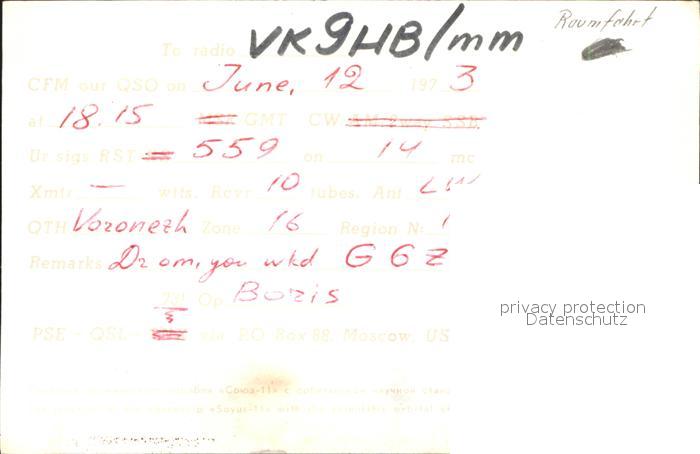 Raumfahrt
To radio VK9HB/mm
CFM our QSO on June, 12 1973
at 18.15 MSK GMT CW AM 2way SSB
Ur sigs RST 559 on 14 mc
Xmtr — wtts. Rcvr 10 tubes. Ant LW
QTH Voronezh Zone 16 Region N:
Remarks Dr om, you wkd G6Z
Op. Boris
PSE - QSL - via P.O. Box 88, Moscow, US
privacy protection
Datenschutz
«Союз-11» с орбитальной научной
«Soyuz-11» with the scientific orbital